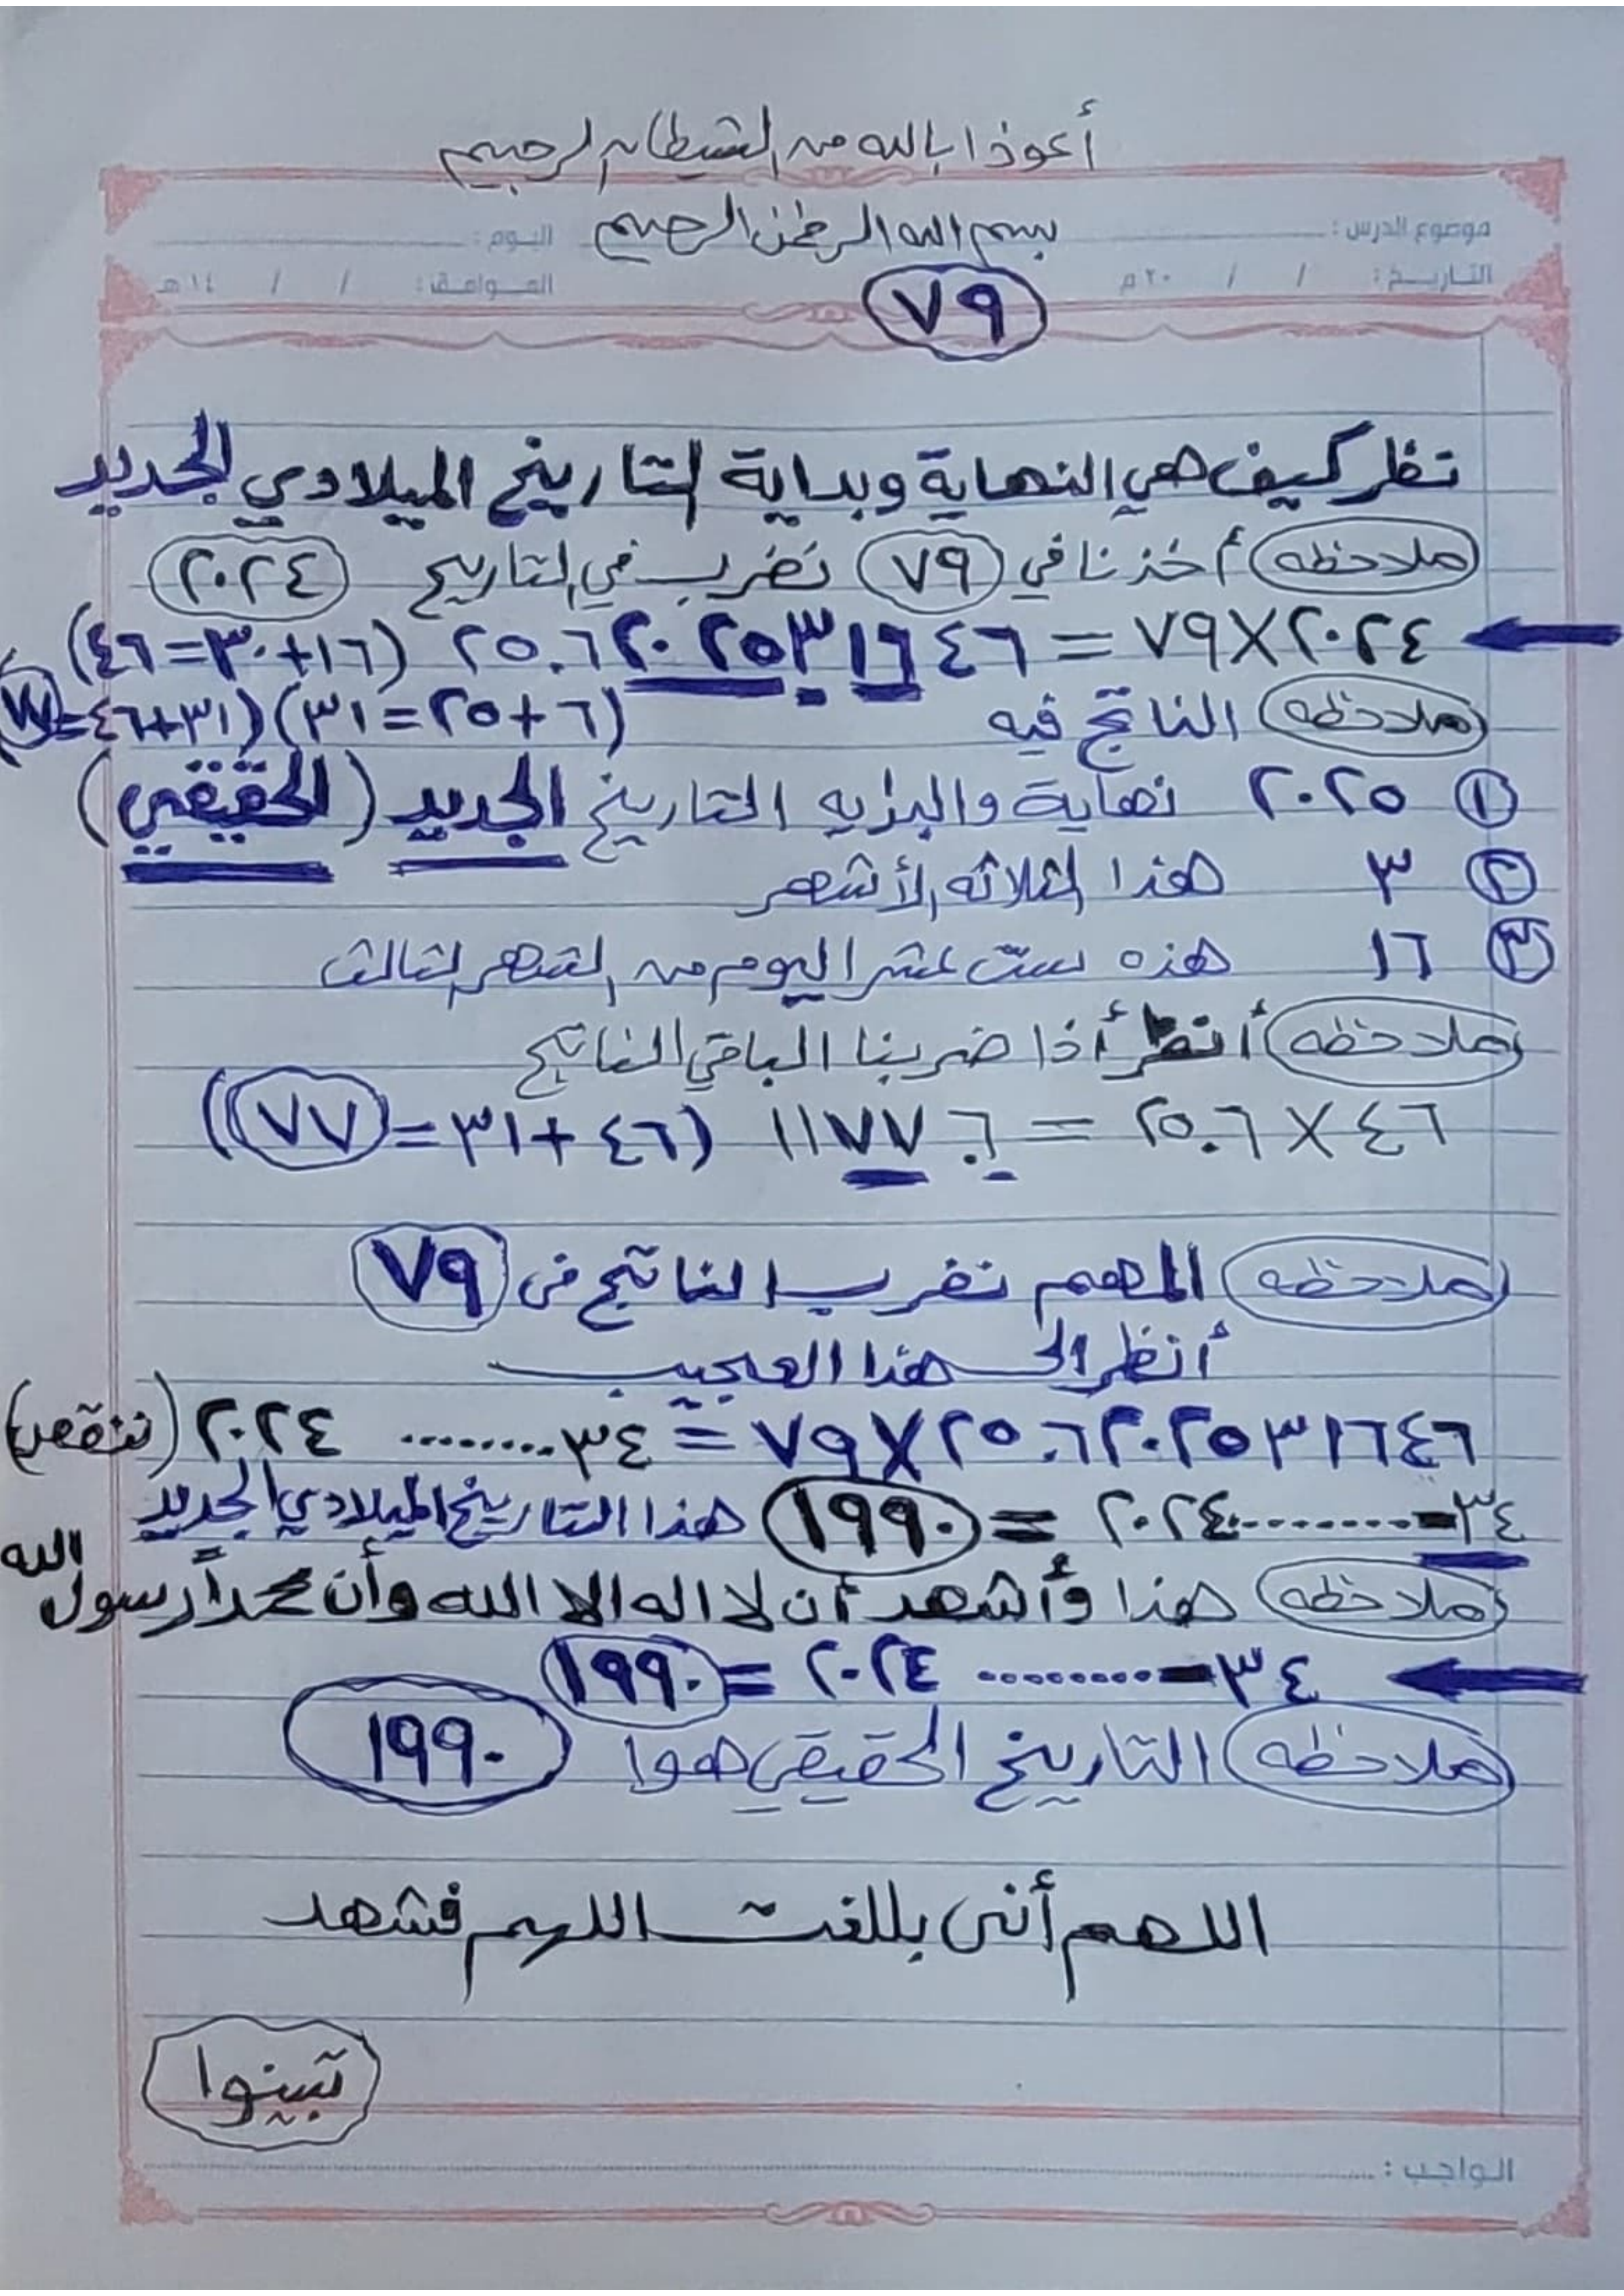 أعوذ ا بالله من الشيطان الرجيم
بسم الله الرحمن الرحيم
موضوع الدرس : اليوم :
التاريخ : / / ٢٠ م الموافق : / / ١٤ هـ
٧٩
تظر كيف هي النهاية وبداية التاريخ الميلادي الجديد
ملاحظه أخذنا في ٧٩ نضرب في التاريخ ٢٠٢٤
٧٩X٢٠٢٤ = ٢٥.٦٢٠٢٥٣١٦٤٦ (٤٦=٣٠+١٦)
ملاحظه الناتج فيه (٣١=٢٥+٦)(٧٧=٤٦+٣١)
١ ٢٠٢٥ نهاية والبدايه التاريخ الجديد (الحقيقي)
٢ ٣ هذا الثلاثه الأشهر
٣ ١٦ هذه ست عشر اليوم من الشهر الثالث
ملاحظه أنظر أذا ضربنا الباقي الناتج
٢٥.٦ X ٤٦ = ١١٧٧.٦ (٧٧=٣١+٤٦)
ملاحظه المهم نضرب الناتج في ٧٩
أنظر الى هذا العجيب
٧٩X٢٥.٦٢٠٢٥٣١٦٤٦ = ٣٤........ ٢٠٢٤ (ننقص)
٣٤-........٢٠٢٤ = ١٩٩٠ هذا التاريخ الميلادي الجديد
ملاحظه هذا وأشهد أن لا اله الا الله وأن محمداً رسول الله
٣٤-........ ٢٠٢٤ = ١٩٩٠
ملاحظه التاريخ الحقيقي هوا ١٩٩٠
اللهم أني بللغت اللهم فشهد
تبينوا
الواجب :